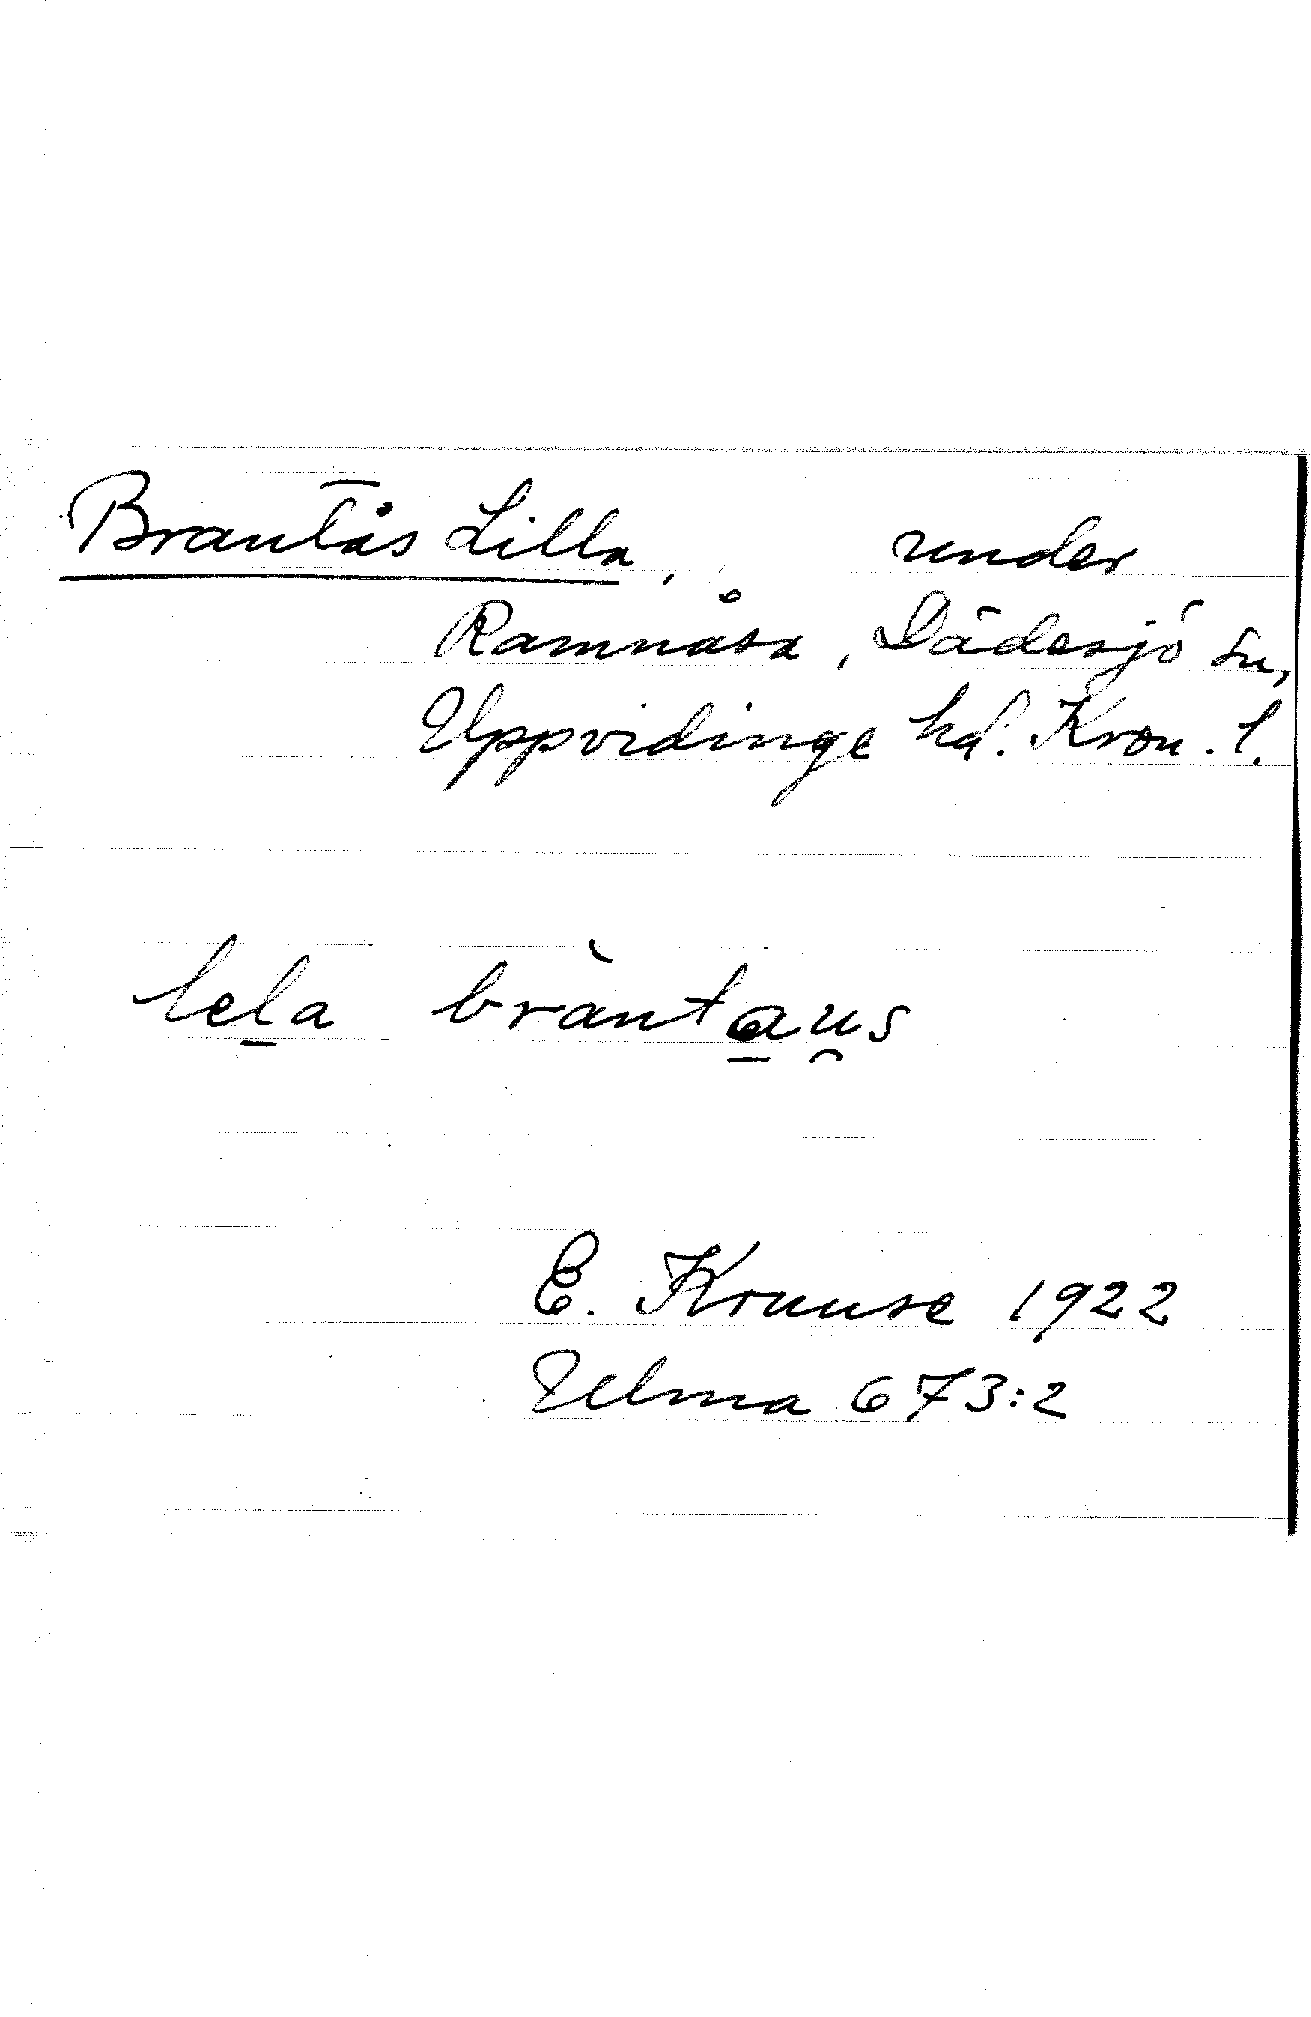 Brantås Lilla, under
Ramnåsa, Dädesjö sn,
Uppvidinge hd. Kron. l.
lel̲a brànta̲u̯s
E. Kruuse 1922
Ulma 673:2